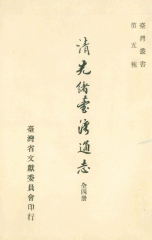 臺灣叢書
第五種
清光緒臺灣通志
全四冊
臺灣省文獻委員會印行